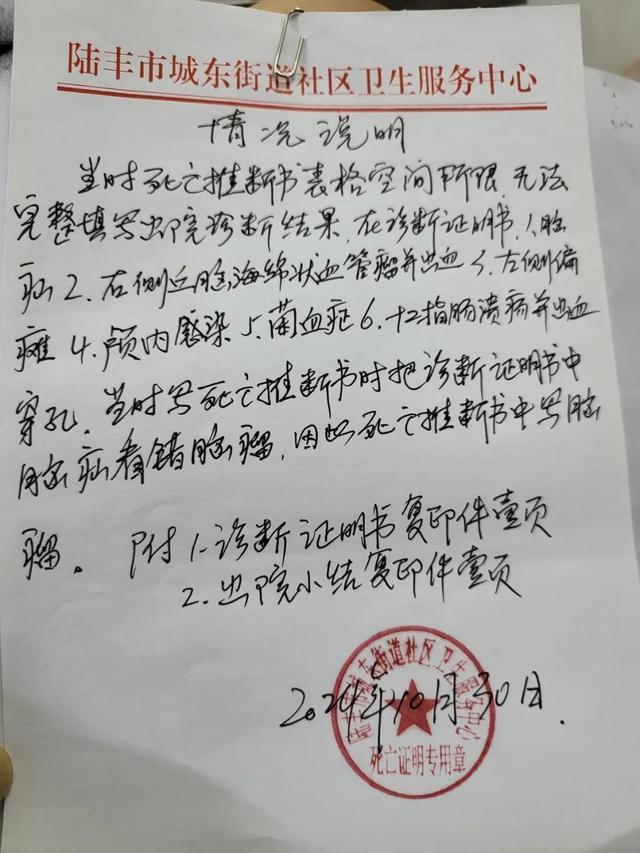 陆丰市城东街道社区卫生服务中心
情况说明
当时死亡推断书表格空间所限,无法
完整填写出院诊断结果,在诊断证明书,1.脑
疝2、右侧丘脑海绵状血管瘤并出血3、左侧偏
瘫4.颅内感染5.菌血症6、十二指肠溃疡并出血
穿孔,当时写死亡推断书时把诊断证明书中
脑疝看错脑瘤,因此死亡推断书中写脑
瘤。附1.诊断证明书复印件壹页
2.出院小结复印件壹页
2024年10月30日.
陆丰市城东街道社区卫生服务中心
死亡证明专用章